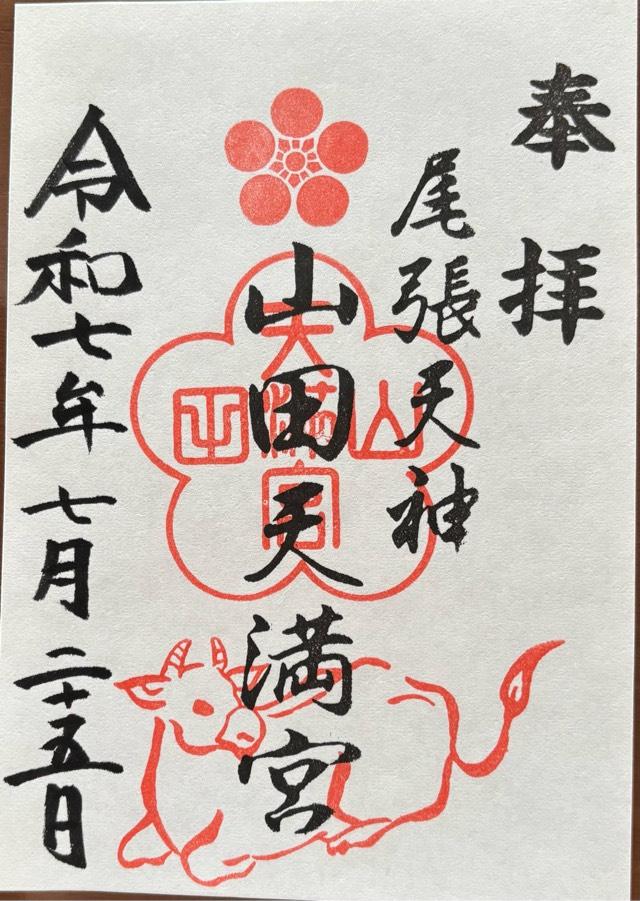 奉拝
尾張天神
山田天満宮
令和七年七月二十五日
天満宮
山
田